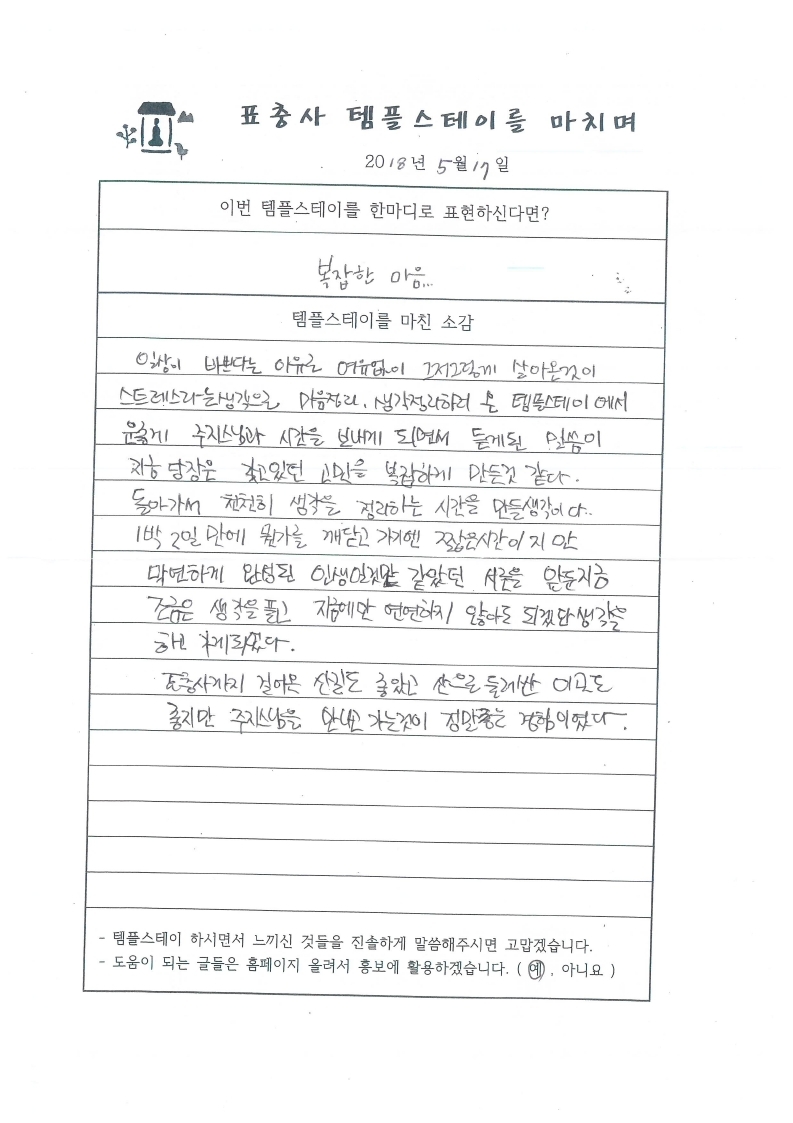 표충사 템플스테이를 마치며
2018년 5월 17일
이번 템플스테이를 한마디로 표현하신다면?
복잡한 마음...
템플스테이를 마친 소감
일상이 바쁘다는 이유로 여유없이 그저그렇게 살아온것이
스트레스라는생각으로 마음정리, 생각정리하러 온 템플스테이에서
운좋게 주지스님과 시간을 보내게 되면서 듣게된 말씀이
지금 당장은 갖고있던 고민을 복잡하게 만든것 같다.
돌아가서 천천히 생각을 정리하는 시간을 만들생각이다..
1박 2일 만에 뭔가를 깨닫고 가기엔 짧은시간이지만
막연하게 완성된 인생일것만 같았던 서른을 앞둔지금
조금은 생각을 풀고 지금에만 연연하지 않아도 되겠단생각을
하고 가게되었다.
표충사까지 걸어온 산길도 좋았고 산으로 둘레싼 이곳도
좋지만 주지스님을 만나고 가는것이 정말좋은 경험이었다.
- 템플스테이 하시면서 느끼신 것들을 진솔하게 말씀해주시면 고맙겠습니다.
- 도움이 되는 글들은 홈페이지 올려서 홍보에 활용하겠습니다. ( 예 , 아니요 )